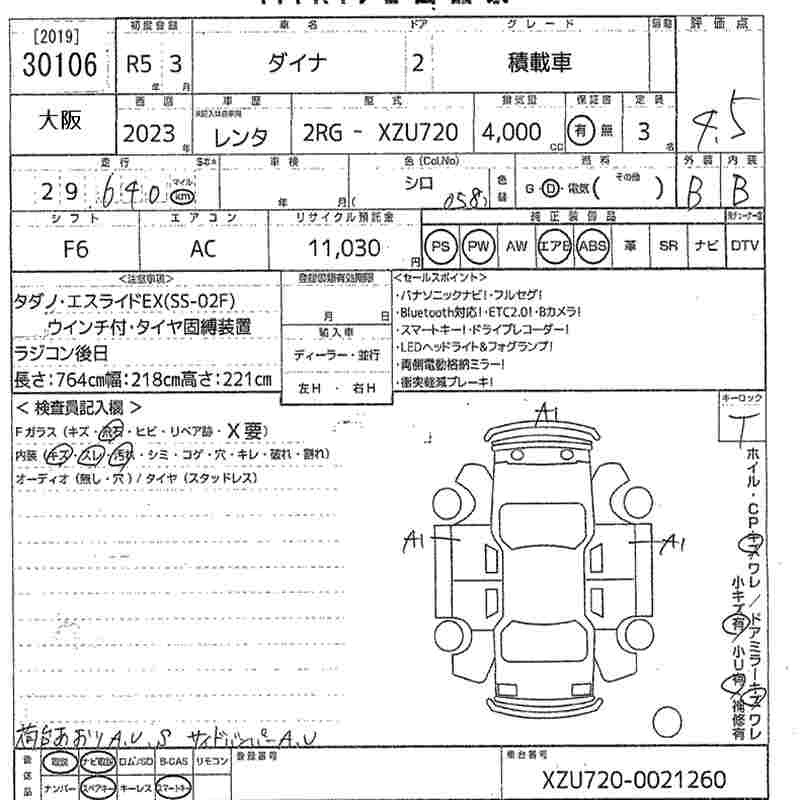 [2019]
30106
初度登録
R5 3
年 月
車名
ダイナ
ドア
2
グレード
積載車
評価点
4.5
大阪
2023
年
車歴
未記入は自家用
レンタ
型式
2RG - XZU720
排気量
4,000
CC
保証書
有 無
定員
3
名
走行
29 640
マイル
km
車検
年 月(
色(Col.No)
シロ
058)
色替
燃料
G・D・電気( その他 )
外装
B
内装
B
シフト
F6
エアコン
AC
リサイクル預託金
11,030
円
純正装備品
PS PW AW エアB ABS 革 SR ナビ DTV
<注意事項>
タダノ・エスライドEX(SS-02F)
ウインチ付・タイヤ固縛装置
ラジコン後日
長さ:764cm幅:218cm高さ:221cm
月 日
輸入車
ディーラー・並行
左H ・ 右H
<セールスポイント>
・パナソニックナビ!・フルセグ!
・Bluetooth対応!・ETC2.0!・Bカメラ!
・スマートキー!・ドライブレコーダー!
・LEDヘッドライト&フォグランプ!
・両側電動格納ミラー!
・衝突軽減ブレーキ!
< 検査員記入欄 >
Fガラス (キズ・飛石・ヒビ・リペア跡・X要)
内装 (キズ・スレ・汚れ・シミ・コゲ・穴・キレ・破れ・割れ)
オーディオ (無し・穴) / タイヤ (スタッドレス)
キーロック
T
A1
A1
A1
ホイル・CPキズワレ/ドアミラーキズワレ
小キズ有 小U有 補修有
荷台あおりA.U.S サイドバンパーA.U
後送品
取説 ナビ取説 ロム/SD B-CAS リモコン
ナンバー スペアキー キーレス スマートキー
登録番号
車台番号
XZU720-0021260